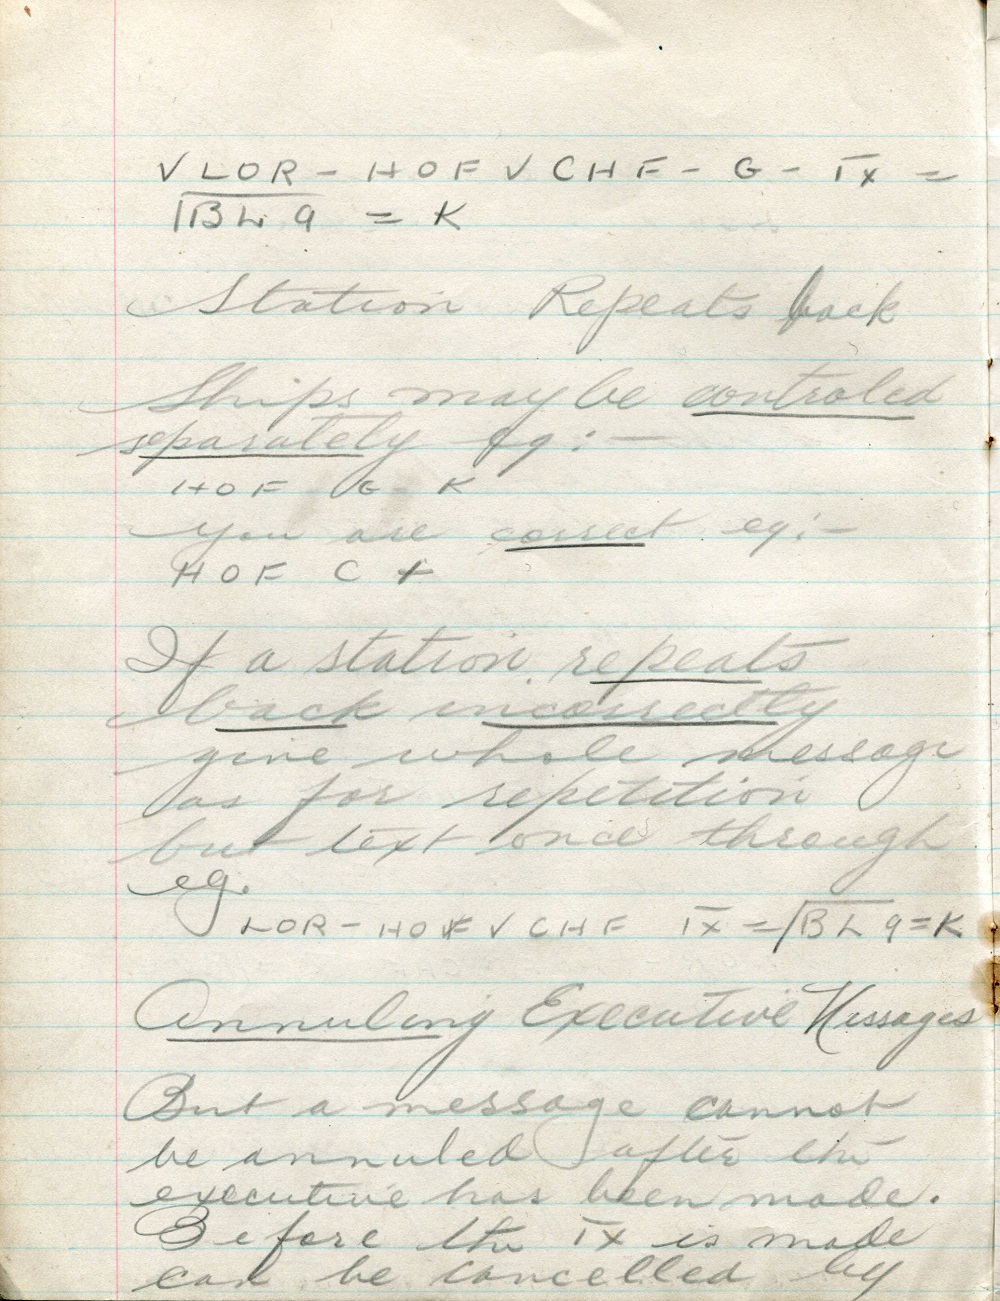 √ LOR - HOF √ CHF - G - I̅X̅ =
/B̅L̅ 9 = K
Station Repeats back
Ships may be controled
separately eg: -
HOF G K
you are correct eg: -
HOF C +
If a station repeats
back incorrectly
give whole message
as for repetition
but text once through
eg.
LOR - HOF √ CHF I̅X̅ = /B̅L̅ 9 = K
Annuling Executive Messages
But a message cannot
be annuled after the
executive has been made.
Before the I̅X̅ is made
can be cancelled by